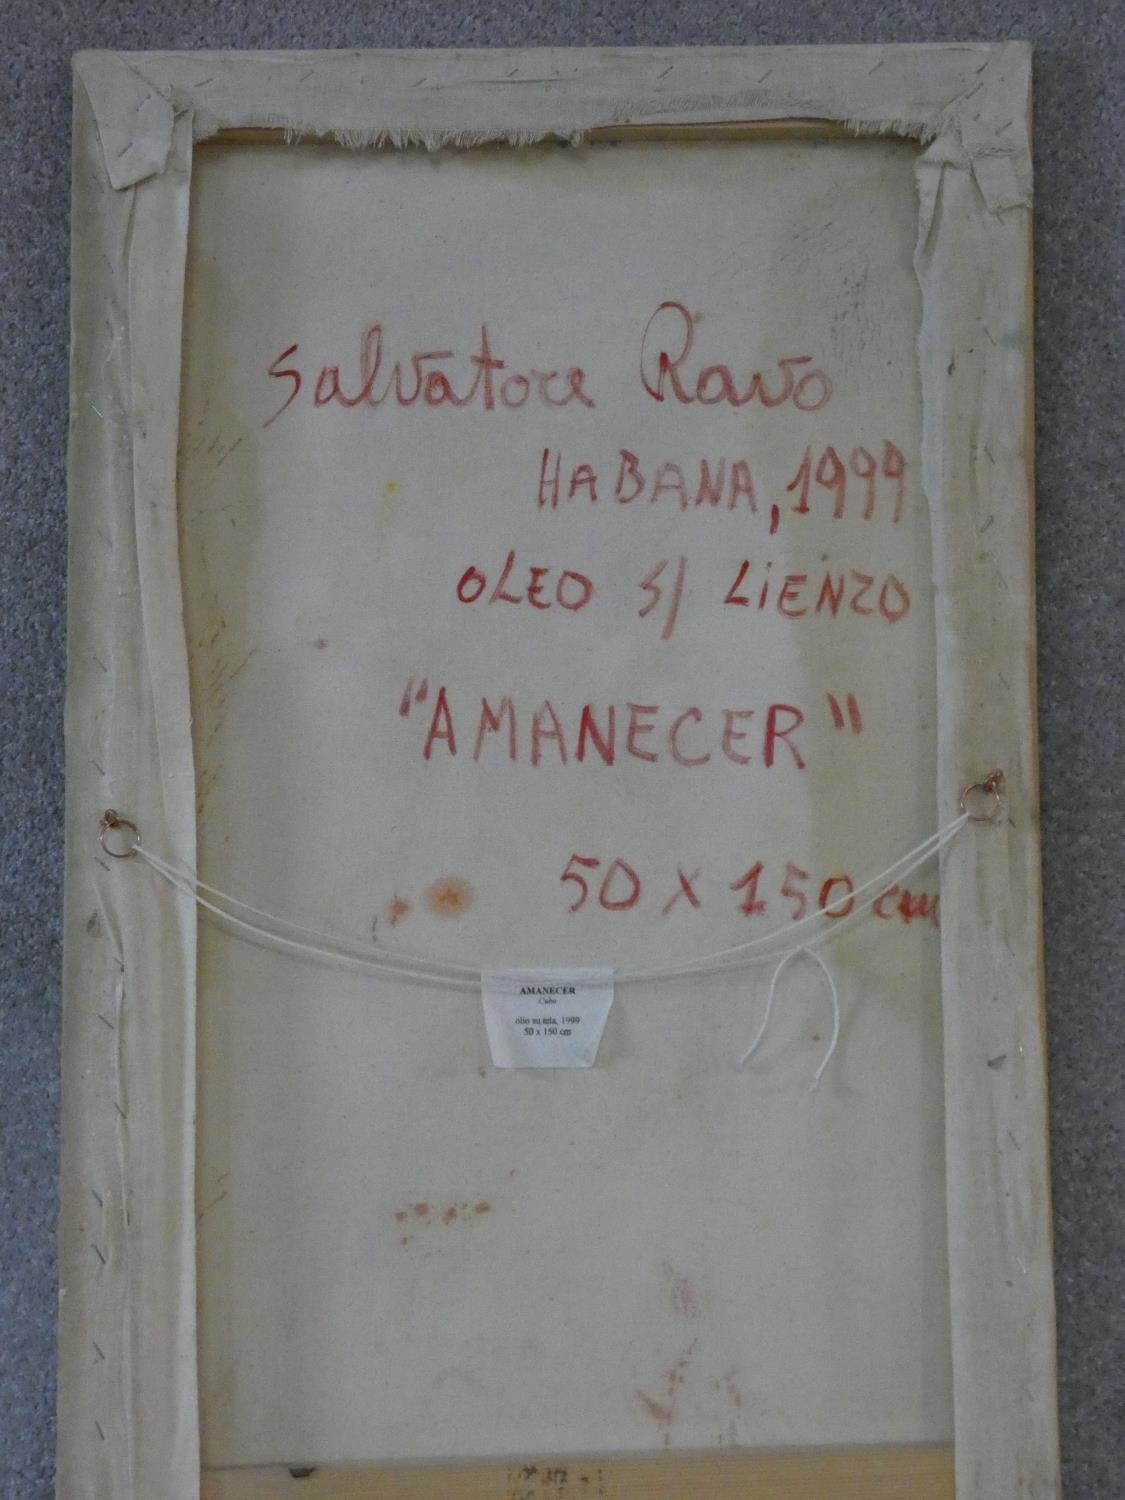 Salvatore Ravo
HABANA, 1999
OLEO S/ LiENZO
"AMANECER"
50 X 150 cm
AMANECER
Cuba
olio su tela, 1999
50 x 150 cm